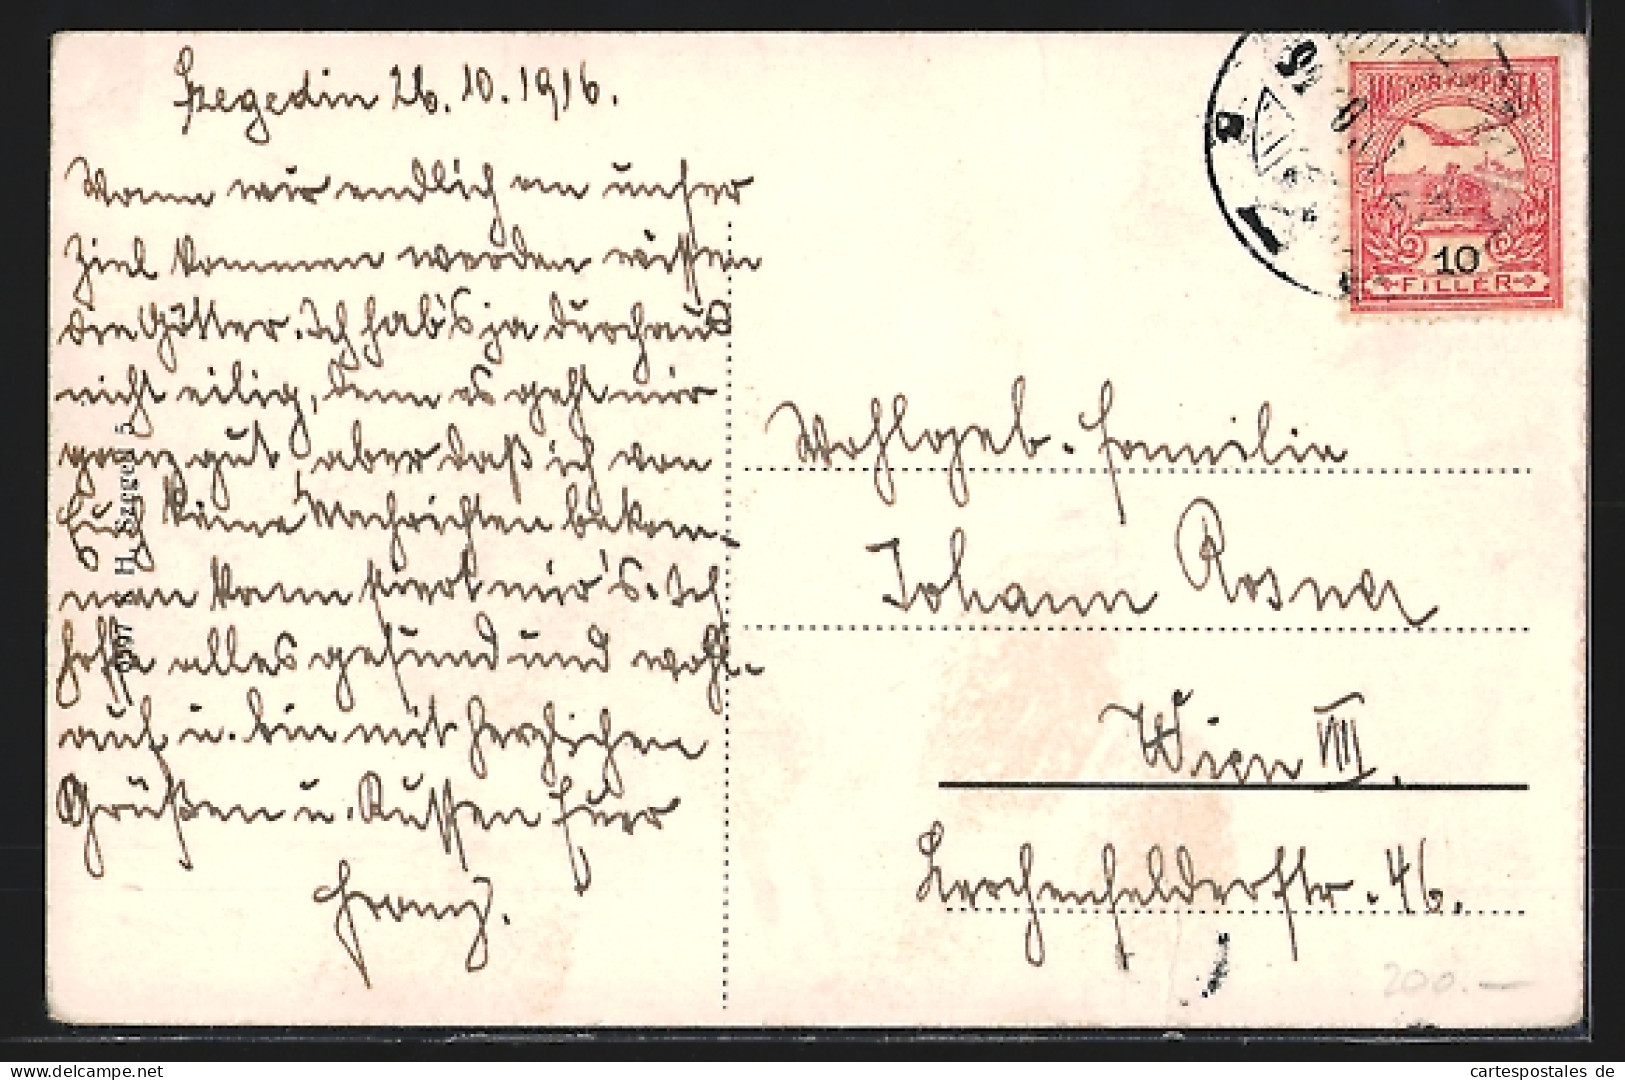 Szegedin 26.10.1916.
Wann wir endlich an unser
Ziel kommen werden wissen
die Götter. Ich hab's ja durchaus
nicht eilig, denn es geht mir
ganz gut, aber daß ich von
Euch keine Nachrichten bekom-
men kann mir's. Ich
hoffe alles gesund und wohl-
auf u. bin mit herzlichen
Grüßen u. Küssen Euer
Franz.
H. Szeged 5
MAGYAR KIR. POSTA
10
FILLER
Wohlgeb. Familie
Johann Rosner
Wien VIII.
Lerchenfelderstr. 46.
200.—
cartespostales de